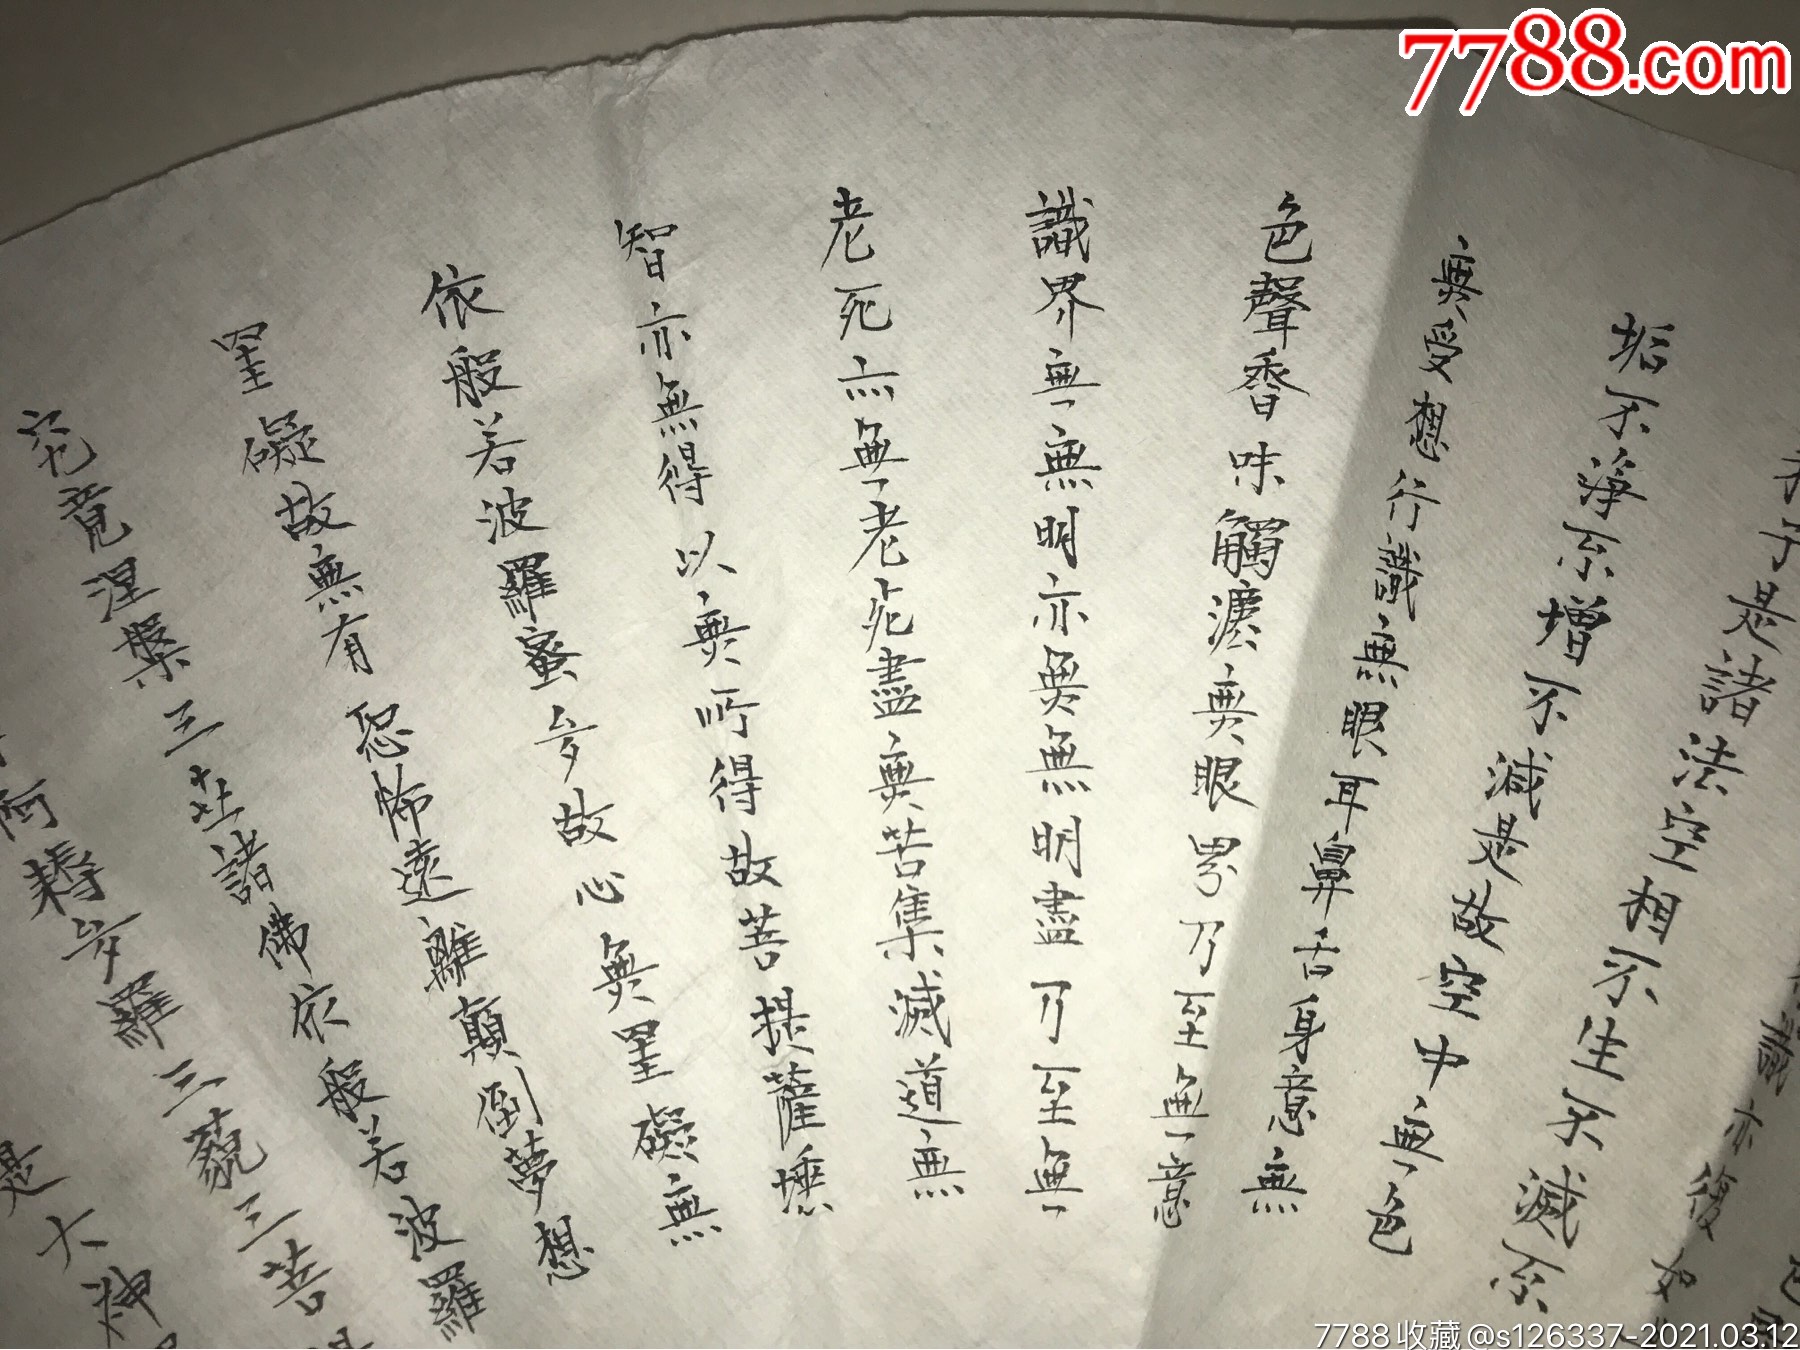 7788.com
識亦復如
利子是諸法空相不生不滅不
垢不淨不增不減是故空中無色
無受想行識無眼耳鼻舌身意無
色聲香味觸法無眼界乃至無意
識界無無明亦無無明盡乃至無
老死亦無老死盡無苦集滅道無
智亦無得以無所得故菩提薩埵
依般若波羅蜜多故心無罣礙無
罣礙故無有恐怖遠離顛倒夢想
究竟涅槃三世諸佛依般若波羅
阿耨多羅三藐三菩
是大神
7788收藏@s126337-2021.03.12